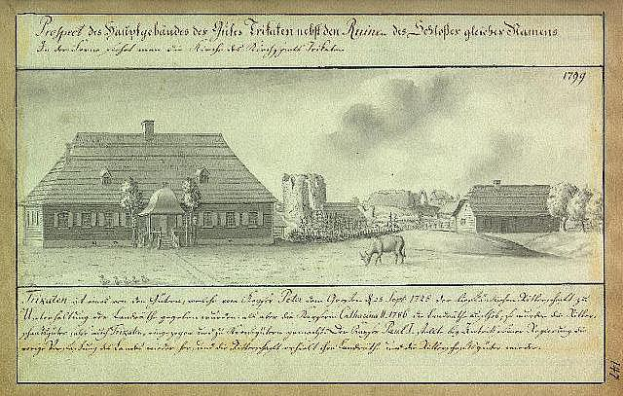 Prospect des Hauptgebäudes des Gutes Trikaten nebst den Ruinen des Schloßes gleichen Namens
In der Ferne siehet man die Kirche des Kirchspiels Trikaten
1799
Trikaten ist eins von den Gütern, welche vom Kayser Peter dem Großen d. 28 Sept. 1725 der Ritterschaft zu
Unterhaltung der Landräthe gegeben wurden als aber die Kayserin Catharina II. 1786 die Landräthe aufhob, so wurden die Ritter-
auch Trikaten, Kayser Paul I. stellte bey Antritt seiner Regierung die
vorige Verfassung des Landes wieder her, und die Ritterschaft erhielt ihre Landräthe und die Ritterschaftsgüter wieder.
147